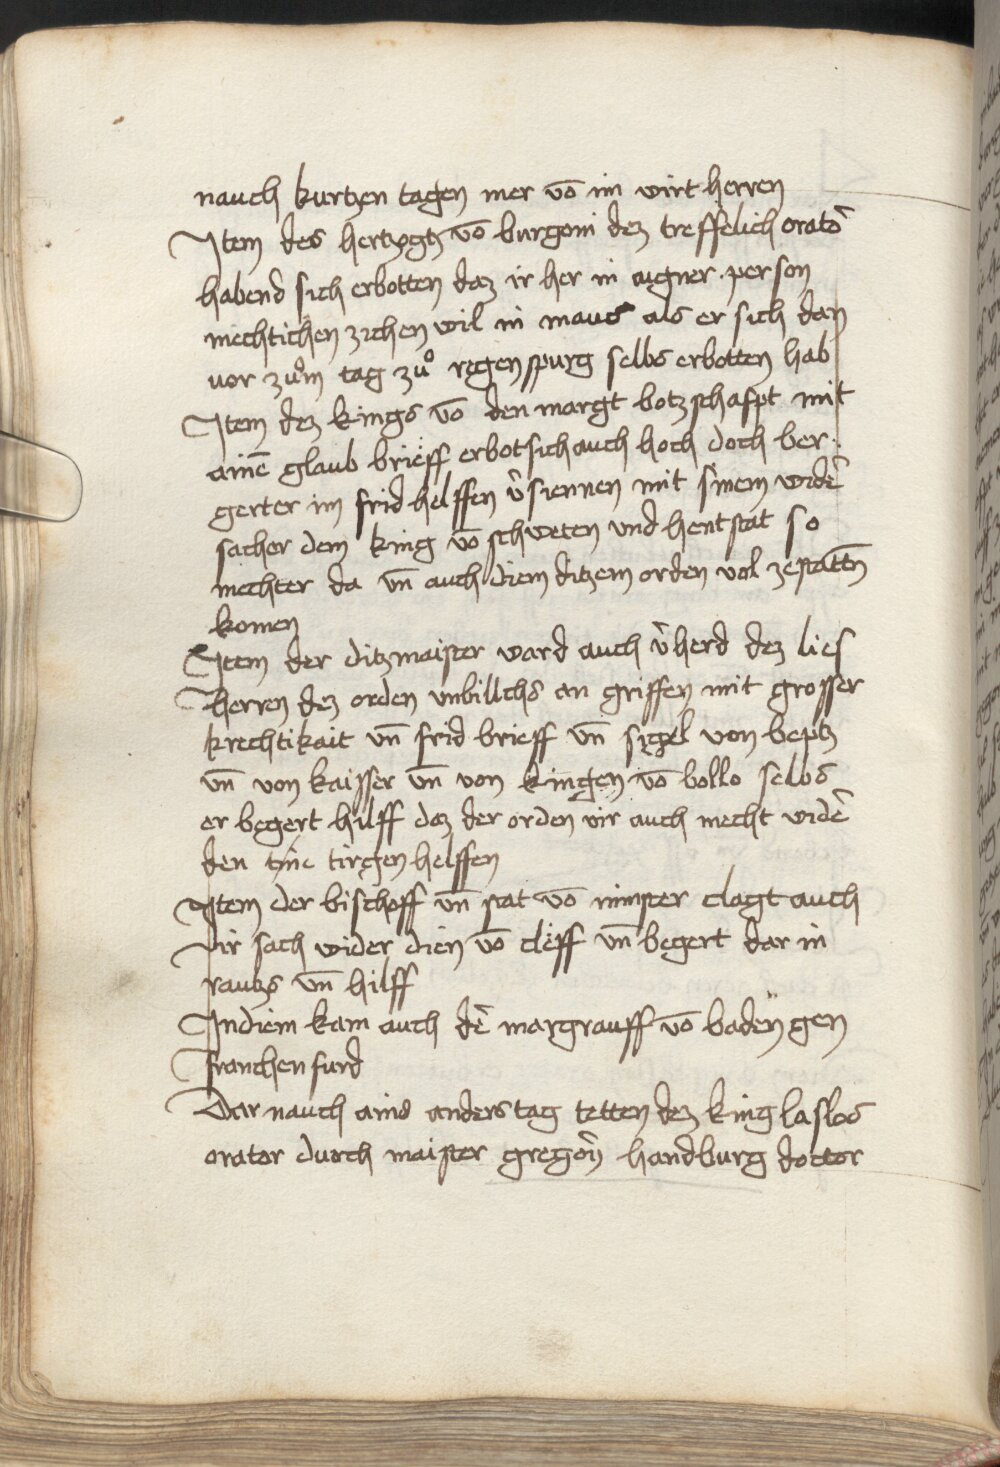 nauch kurtzen tagen mer vō im wirt herren
Item des hertzogtz vō burgoni dez treffelich oratō
habend sich erbotten daz ir her in aigner person
mechtichen zichen wil in maus als er sich dan
vor zuͦm tag zuͦ regenspurg selbs erbotten hab
Item dez kings vō den margt botzschafpt mit
ainē glaub brieff erbot sich auch hoch doch ber
gerter im frid helffen v̉siennen mit sinem widē
sacher dem king vō schweten vnd hentstat so
mechter da vn̄ auch diem ditzem orden vol zestattn̄
komen
Item der ditzmaister ward auch v̉herd dez lies
herren dez orden vnbillchs an griffen mit grosser
krechtikait vn̄ frid brieff vn̄ sigel von beptz
vn̄ von kaisser vn̄ von kingen vō bollo selbs
er begert hilff daz der orden vir auch mecht widē
den tirgen helffen
Item der bischoff vn̄ stat vō minster clagt auch
vir sach wider dien vō cleff vn̄ begert dar in
rautzs vn̄ hilff
Indiem kam auch dē margrauff vō baden gen
franchenfurd
Dar nauch ains anders tag tetten dez king laslos
orator durch maister gregōn handburg doctor